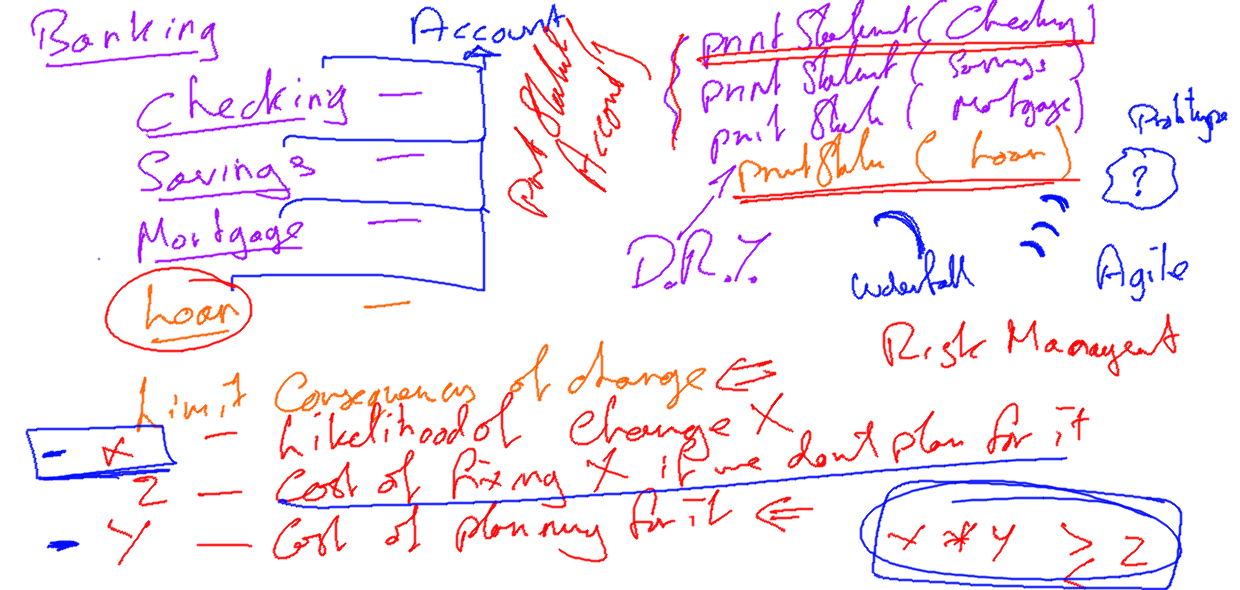 Banking
Account
Checking —
Savings —
Mortgage —
Loan —
Print Statement
Account
print Statement ( Checking )
print Statement ( Savings )
print State ( Mortgage )
print State ( Loan )
D.R.Y.
Prototype
?
Waterfall
Agile
Risk Management
Limit Consequences of change ⇐
- x — Likelihood of change X
Z — Cost of fixing X if we don't plan for it
- Y — Cost of planning for it ⇐
x * y ≥ z